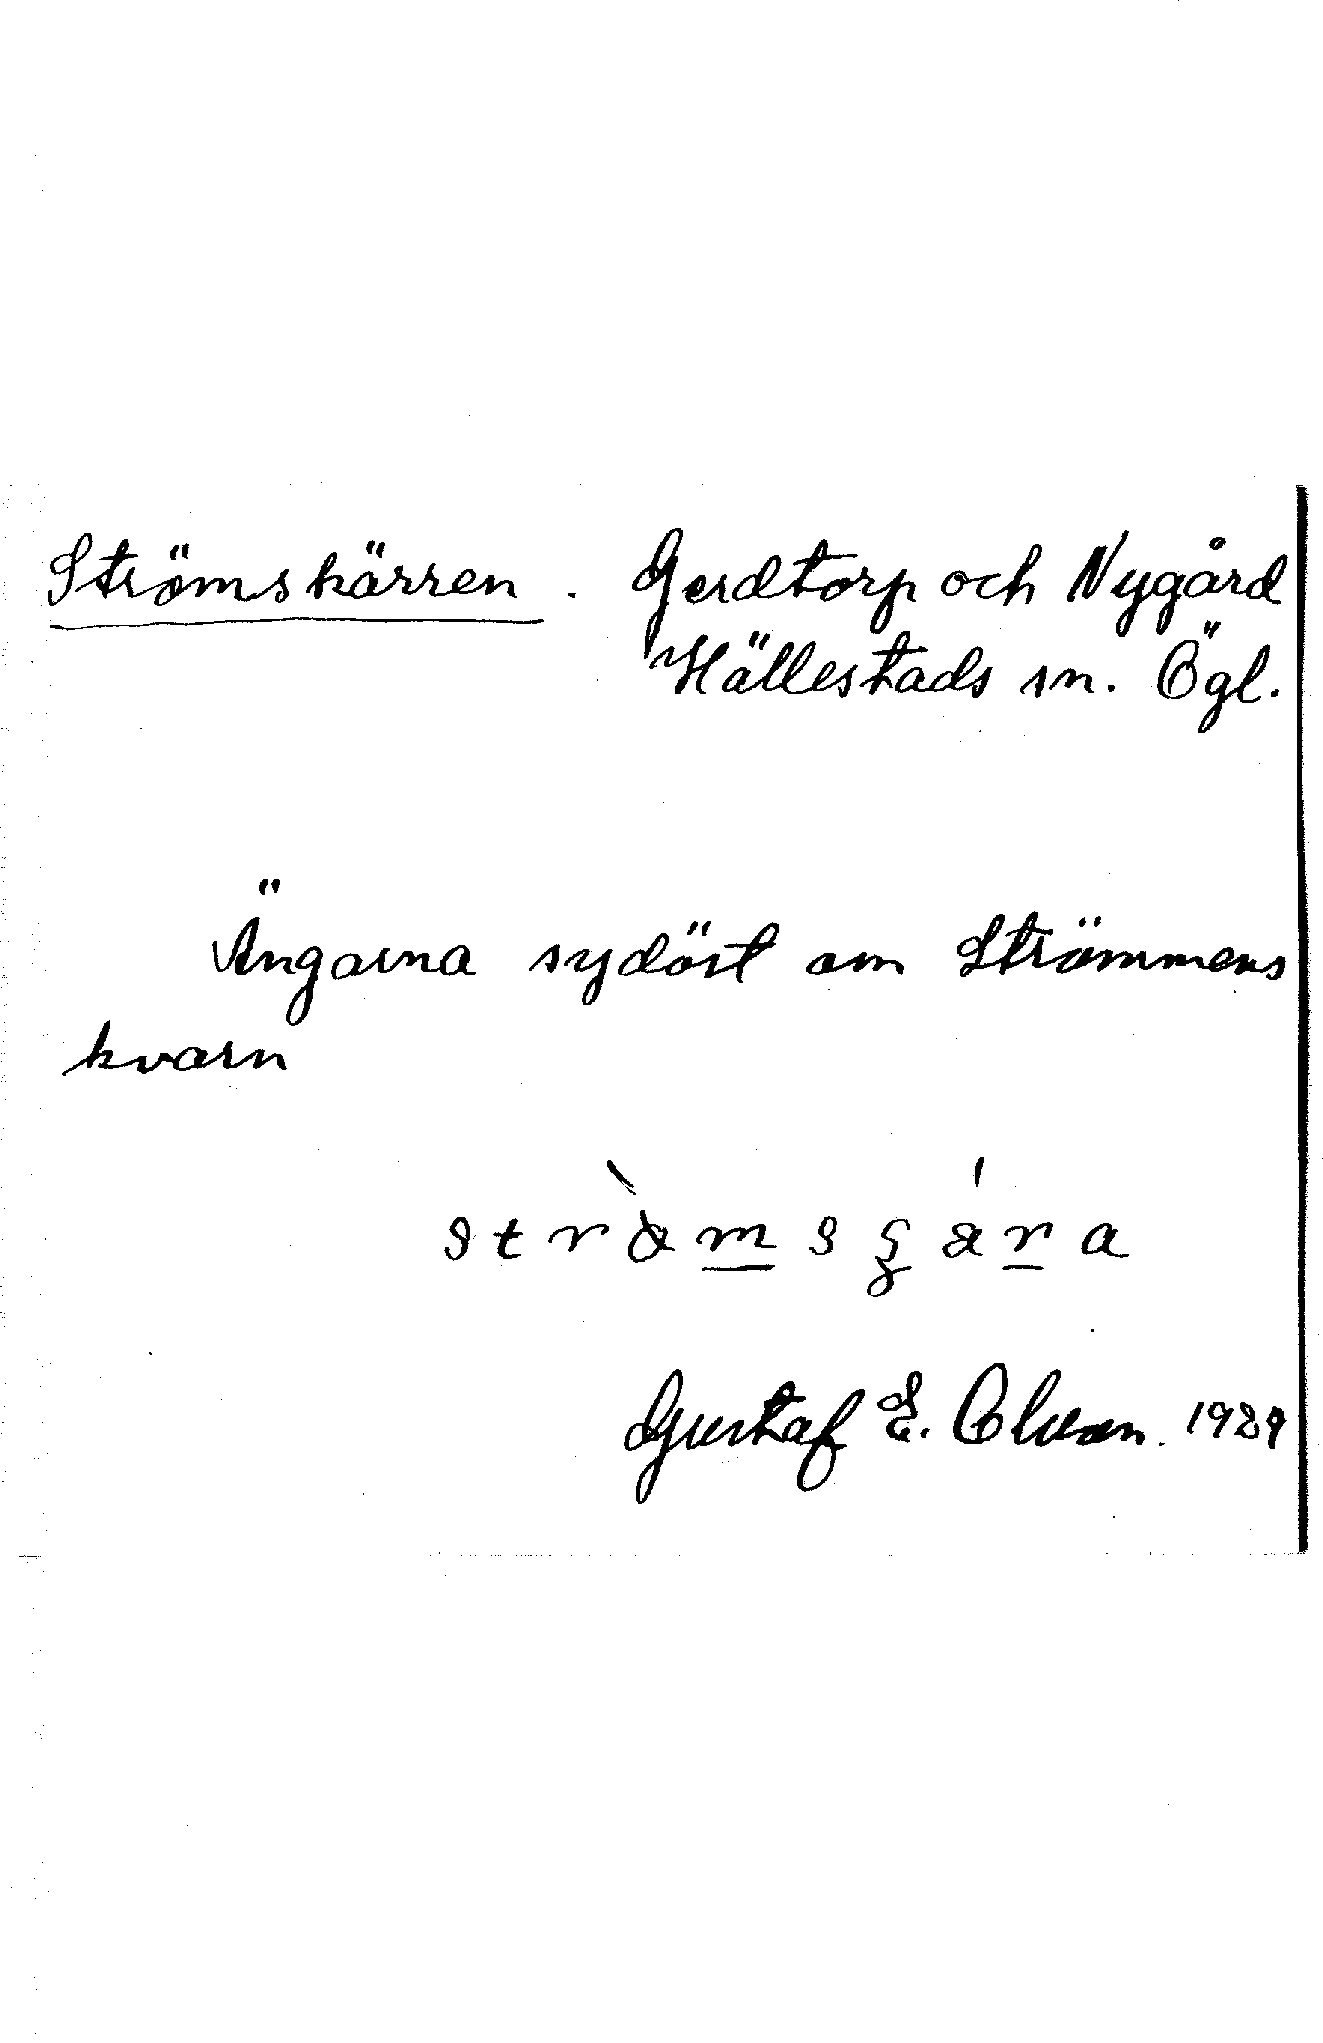 Strömskärren. Gerdtorp och Nygård
Hällestads sn. Ögl.
Ängarna sydöst om Strömmens
kvarn
Gustaf E. Olsson. 1929